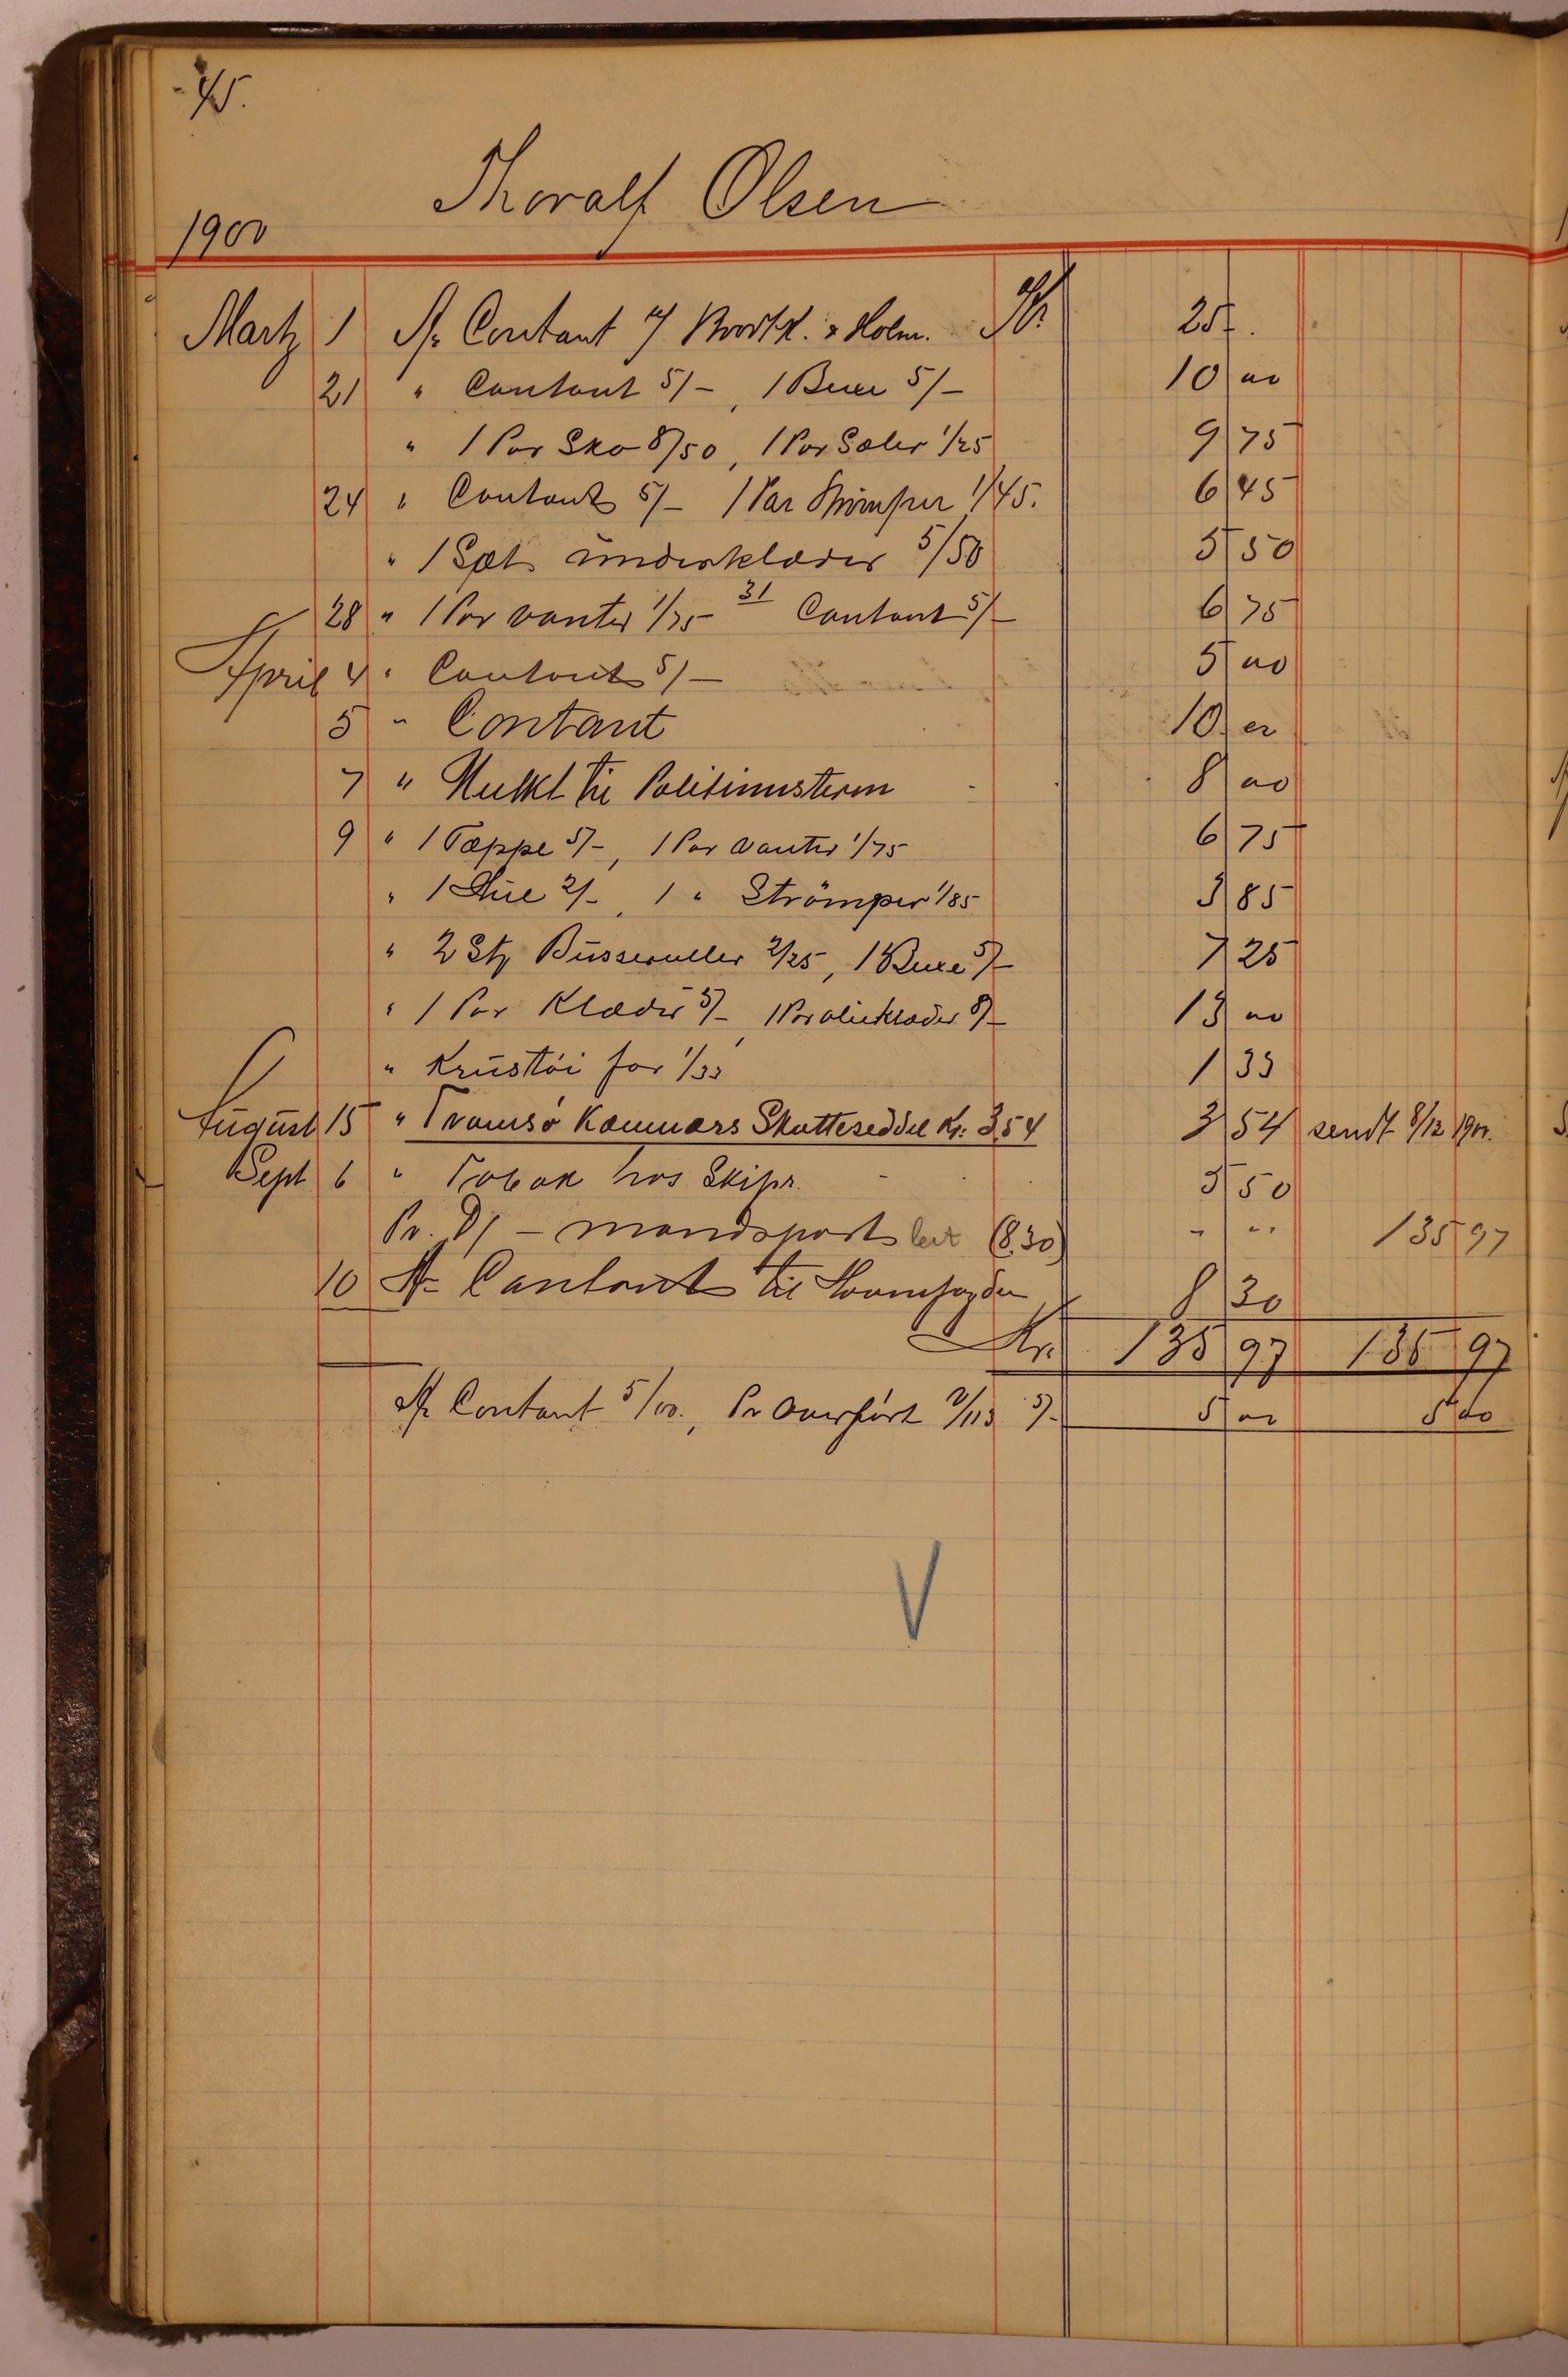 45.
Thoralf Olsen
1900
Martz 1 An Contant Kr. 25 -.
21 " Contant 5/-, 1 Buxe 5/- 10 00
" 1 Par Sko 8/50, 1 Par Saler 1/25 9 75
24 " Contant 5/- 1 Par Strömper 1/45. 6 45
" 1 Sæt underklæder 5/50 5 50
28 " 1 Par vanter 1/75 31 Contant 5/- 6 75
April 4 " Contant 5/- 5 00
5 " Contant 10 00
7 " Mulkt til Politimesteren - 8 00
9 " 1 Tæppe 5/-, 1 Par vanter 1/75 6 75
" 1 Hue 2/-, 1 " Strömper 1/85 3 85
" 2 Stz Busseruller 2/25, 1 Buxe 5/- 7 25
" 1 Par Klæder 5/- 1 Par olieklæder 8/- 13 00
" Krustöi for 1/33 1 33
August 15 " Tromsø Kæmners Skatteseddel Kr: 3,54 3 54 sendt 8/12 1900.
Sept 6 " Tobak hos Skipr. - 5 50
Pr. D/- mandspart (8.30) - " 135 97
10 An Contant til 8 30
Kr. 135 97 135 97
An Contant 5/00., Pr Overfört 2/113 5/- 5 00 5 00
V